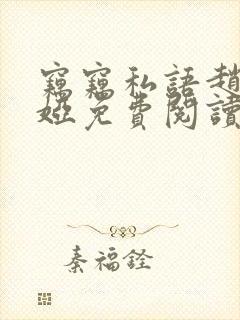 竊竊私語趙
婭免費閱讀
秦福銓